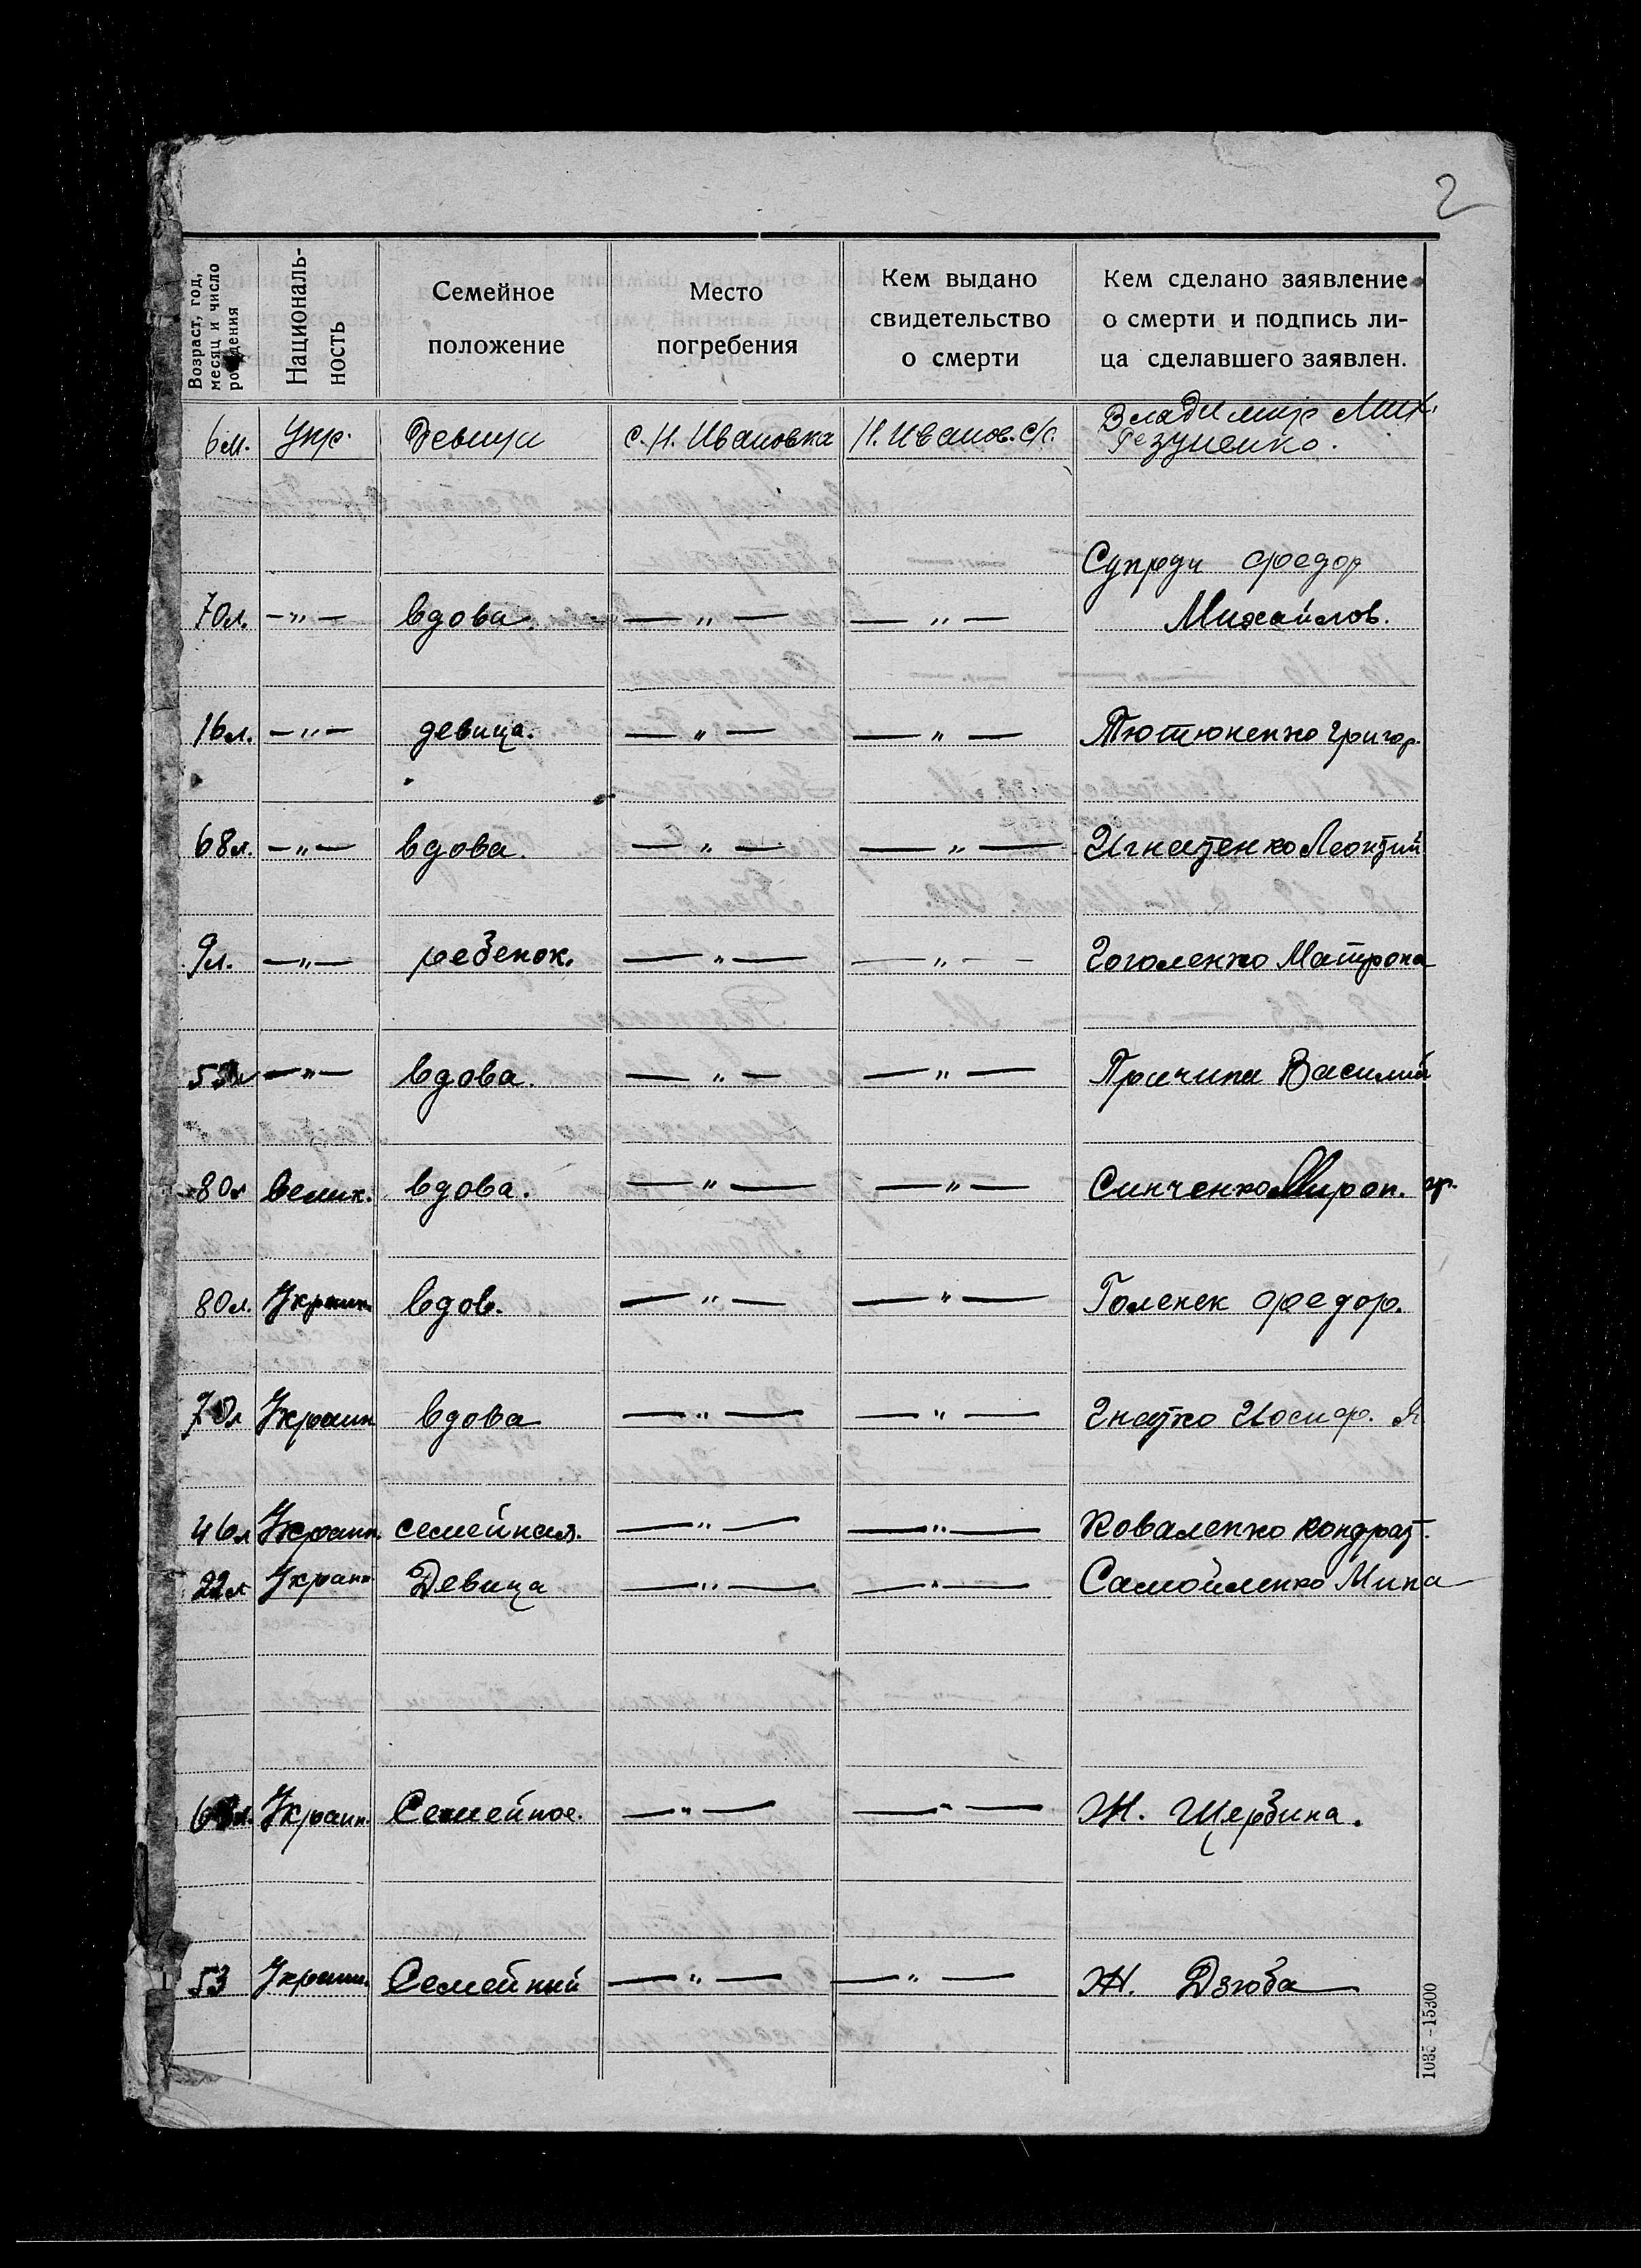 2
Возраст, год, месяц и число рождения
Националь-
ность
Семейное
положение
Место
погребения
Кем выдано
свидетельство
о смерти
Кем сделано заявление
о смерти и подпись ли-
ца сделавшего заявлен.
6 м. Укр. Девица с. Н. Ивановка Н. Иванов. с/с. Владимир Мих.
Резуненко.
Супрун Федор
70 л. — " — вдова. — " — — " — Михайлов.
16 л. — " — девица. — " — — " — Тютюненко Григор.
68 л. — " — вдова. — " — — " — Игнатенко Леонтий
9 л. — " — ребенок. — " — — " — Гоголенко Матрона
— " — вдова. — " — — " — Причина Василий
80 л велик. вдова. — " — — " — Синченко Мирон. гр.
80 л. Украин. вдов. — " — — " — Голенек Федор.
Украин вдова — " — — " — Гнатко Иосиф. Я.
46 л Украин. семейная. — " — — " — Коваленко Кондрат.
22 л Украин. Девица — " — — " — Самойленко Мина
Украин. Семейное. — " — — " — Ж. Щербина.
53 Украин. Семейний — " — — " — Ж. Дзюба
1035 -15300